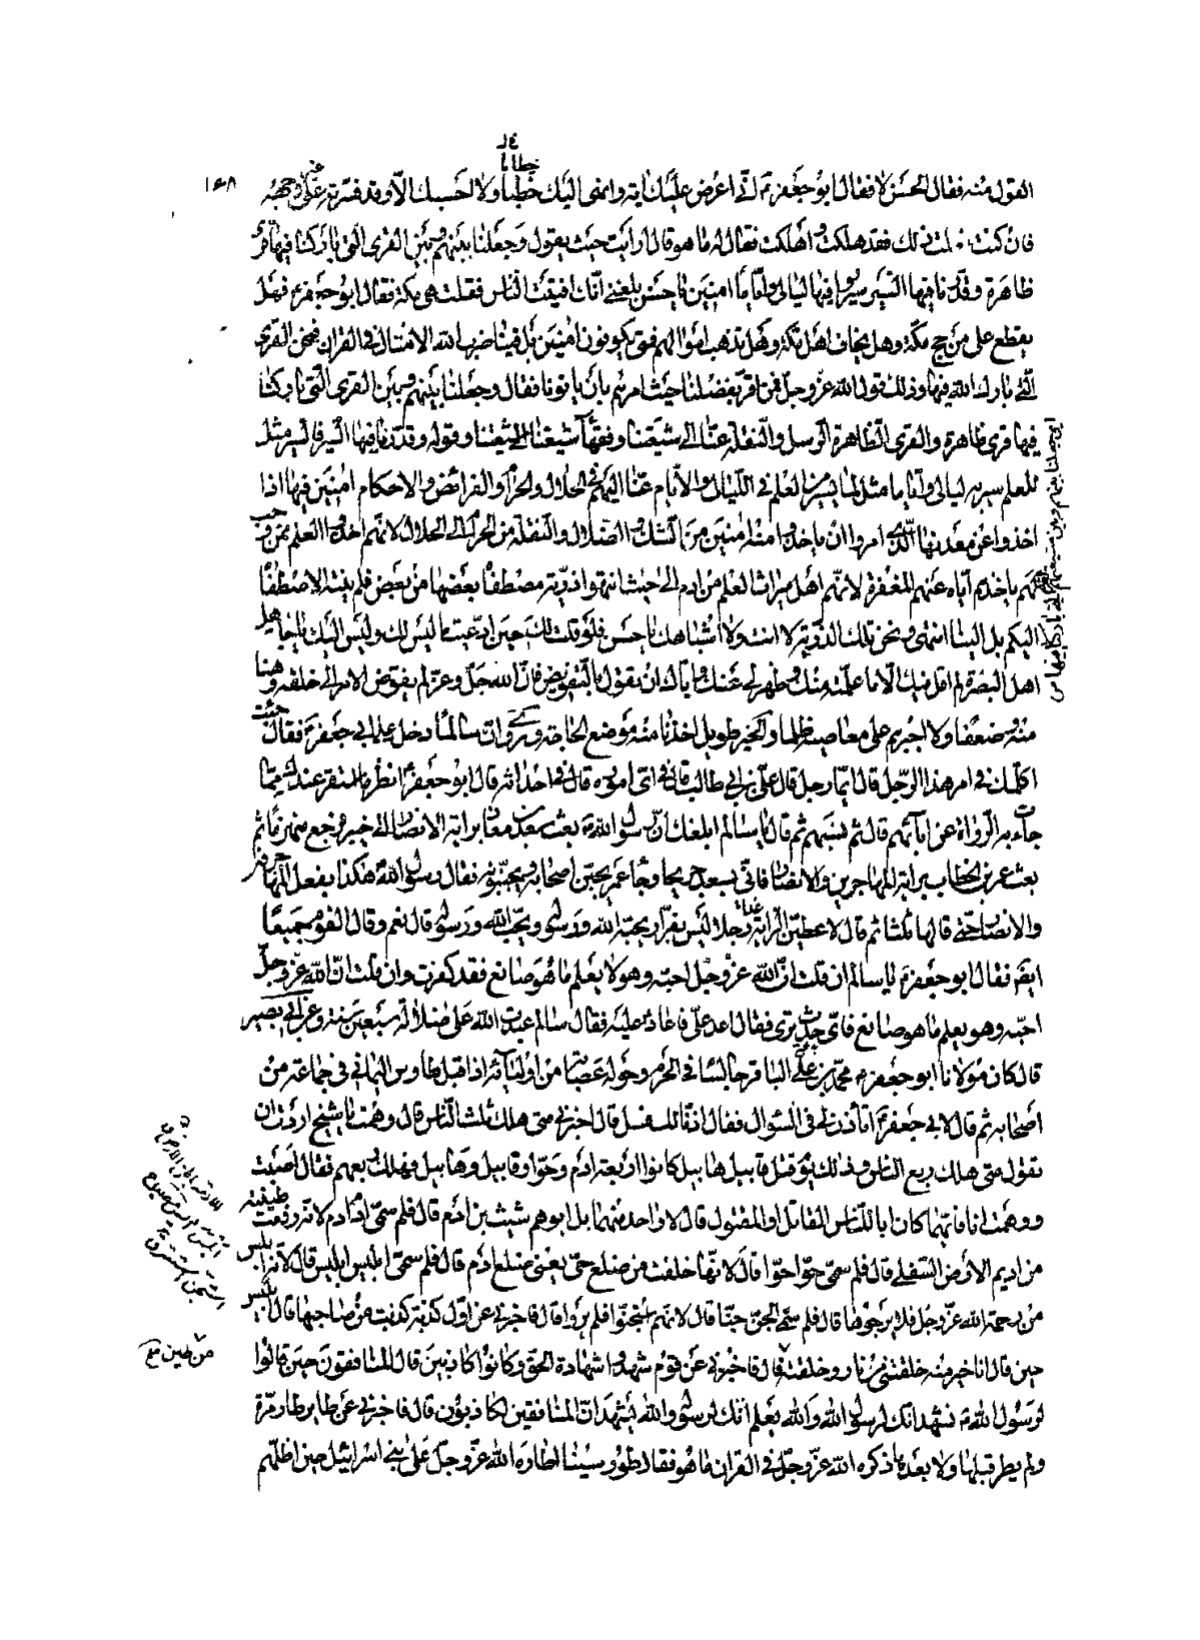 ١٤٨
خطابا
القول منه فقال الحسن لا فقال ابو جعفر ع انى اعرض عليك اية وانهى اليك خطبا ولا احسبك الا وقد فسرته على غير وجهه
فان كنت فعلت ذلك فقد هلكت واهلكت فقال له ما هو قال ارايت حيث يقول وجعلنا بينهم وبين القرى التى باركنا فيها قرى
ظاهرة وقدرنا فيها السير سيروا فيها ليالى واياما امنين يا حسن بلغنى انك افتيت الناس فقلت هى مكة فقال ابو جعفر ع فهل
يقطع على من حج مكة وهل يخاف اهل مكة وهل تذهب اموالهم فمتى يكونون امنين بل فينا ضرب الله الامثال فى القران فنحن القرى
التى بارك الله فيها وذلك قول الله عز وجل فمن اقر بفضلنا حيث امرهم بان ياتونا فقال وجعلنا بينهم وبين القرى التى باركنا
فيها قرى ظاهرة والقرى الظاهرة الرسل والنقلة عنا الى شيعتنا وفقهاء شيعتنا الى شيعتنا وقوله وقدرنا فيها السير فالسير مثل
للعلم سير به ليالى واياما مثل لما يسير من العلم فى الليالى والايام عنا اليهم فى الحلال والحرام والفرائض والاحكام امنين فيها اذا
اخذوا عن معدنها الذى امروا ان ياخذوا منه امنين من الشك والضلال والنقلة من الحرام الى الحلال لانهم اخذوا العلم ممن وجب
لهم باخذهم اياه عنهم المغفرة لانهم اهل ميراث العلم من ادم الى حيث انتهوا ذرية مصطفاة بعضها من بعض فلم ينته الاصطفاء
اليكم بل الينا انتهى ونحن تلك الذرية لا انت ولا اشباهك يا حسن فلو قلت لك حين ادعيت ما ليس لك وليس اليك يا جاهل
اهل البصرة لم اقل فيك الا ما علمته منك وظهر لى عنك واياك ان تقول بالتفويض فان الله جل وعز لم يفوض الامر الى خلقه وهنا
منه وضعفا ولا اجبرهم على معاصيه ظلما والخبر طويل اخذنا منه موضع الحاجة وروى ان سالما دخل على ابى جعفر ع فقال جئت
اكلمك فى امر هذا الرجل قال ايما رجل قال على بن ابى طالب قال فى اى اموره قال فى احداثه قال ابو جعفر ع انظر ما استقر عندك مما
جاءت به الرواة عن ابائهم قال ثم نسبهم ثم قال يا سالم ابلغك ان رسول الله ص بعث سعد بن معاذ براية الانصار الى خيبر فرجع منهزما ثم
بعث عمر بن الخطاب براية المهاجرين والانصار فاتى بسعد جريحا وجاء عمر يجبن اصحابه ويجبنونه فقال رسول الله ص هكذا يفعل المهاجرون
والانصار حتى قالها ثلثا ثم قال لاعطين الراية غدا رجلا ليس بفرار يحبه الله ورسوله ويحب الله ورسوله قال نعم وقال القوم جميعا
ايضا فقال ابو جعفر ع يا سالم ان قلت ان الله عز وجل احبه وهو لا يعلم ما هو صانع فقد كفرت وان قلت ان الله عز وجل
احبه وهو يعلم ما هو صانع فاى حدث ترى فقال اعد على فاعاد عليه فقال سالم عبدت الله على ضلالة سبعين سنة وعن ابى بصير
قال كان مولانا ابو جعفر ع محمد بن على الباقر جالسا فى الحرم وحوله عصابة من اوليائه اذ اقبل طاوس اليمانى فى جماعة من
اصحابه ثم قال لابى جعفر ع اتاذن لى فى السؤال فقال اذنا لك فسل قال اخبرنى متى هلك ثلث الناس قال وهمت يا شيخ اردت ان
تقول متى هلك ربع الناس وذلك يوم قتل قابيل هابيل كانوا اربعة ادم وحوا وقابيل وهابيل فهلك ربعهم فقال اصبت
ووهمت انا فايهما كان ابا للناس القاتل او المقتول قال لا واحد منهما بل ابوهم شيث بن ادم قال فلم سمى ادم ادم قال لانه رفعت طينته
من اديم الارض السفلى قال فلم سمى حوا حوا قال لانها خلقت من ضلع حى يعنى ضلع ادم قال فلم سمى ابليس ابليس قال لانه ابلس
من رحمة الله عز وجل فلا يرجوها قال فلم سمى الجن جنا قال لانهم استجنوا فلم يروا قال فاخبرنى عن اول كذبة كذبت من صاحبها قال ابليس
حين قال انا خير منه خلقتنى من نار وخلقته قال فاخبرنى عن قوم شهدوا شهادة الحق وكانوا كاذبين قال المنافقون حين قالوا
من طين صح
لرسول الله ص نشهد انك لرسول الله والله يعلم انك لرسوله والله يشهد ان المنافقين لكاذبون قال فاخبرنى عن طاير طار مرة
ولم يطر قبلها ولا بعدها ذكره الله عز وجل فى القران ما هو فقال طور سينا اطاره الله عز وجل على بنى اسرائيل حين اظلهم